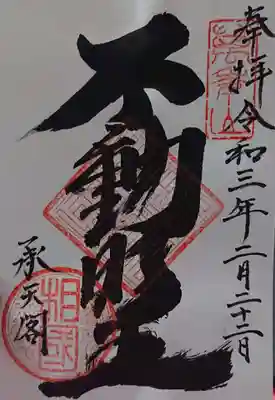 奉拝令和三年二月二十二日
不動明王
承天閣
相国